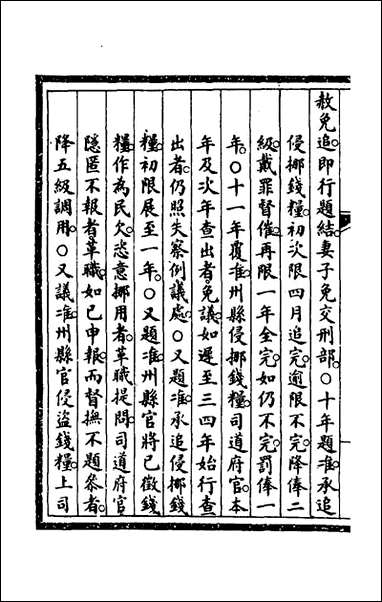 赦免追即行題結妻子免交刑部○十年題准承追
侵挪錢糧初次限四月追完逾限不完降俸二
級戴罪督催再限一年全完如仍不完罰俸一
年○十一年覆准州縣侵挪錢糧司道府官本
年及次年查出者免議如遲至三四年始行查
出者仍照失察例議處○又題准承追侵挪錢
糧初限展至一年○又題准州縣官將已徵錢
糧作為民欠恣意挪用者革職提問司道府官
隱匿不報者革職如已申報而督撫不題參者
降五級調用○又議准州縣官侵盜錢糧上司